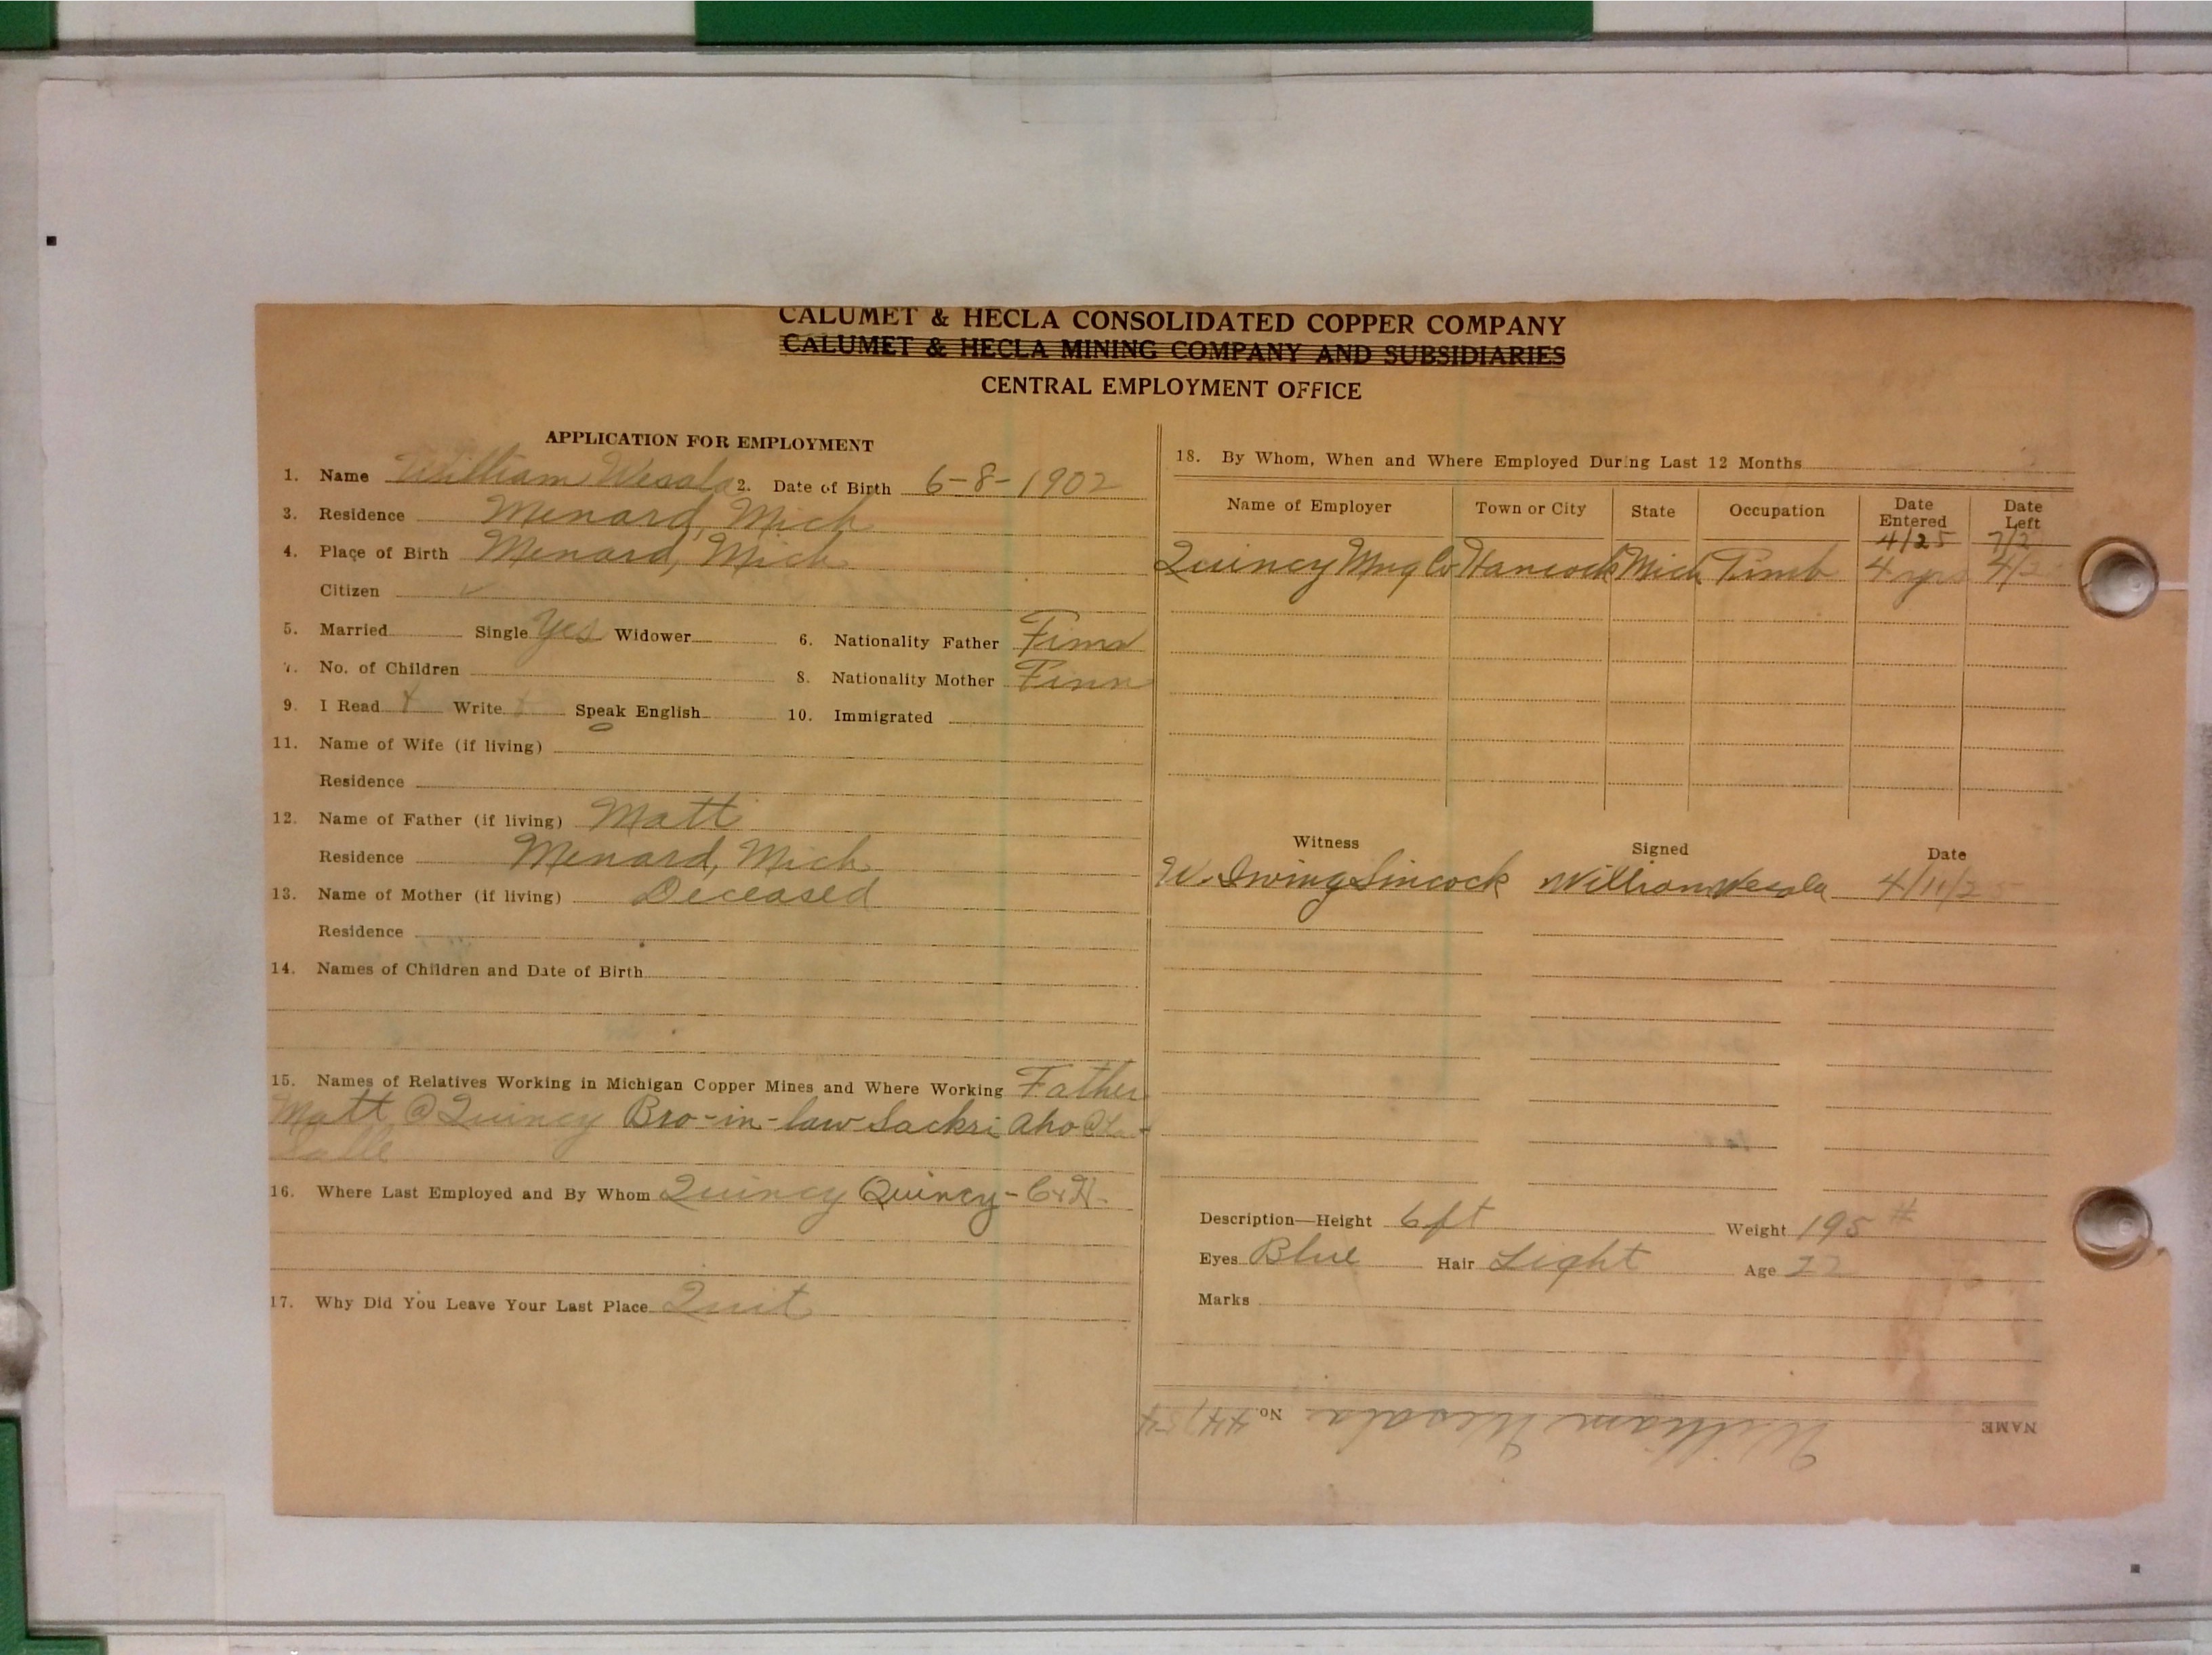 CALUMET & HECLA CONSOLIDATED COPPER COMPANY
CALUMET & HECLA MINING COMPANY AND SUBSIDIARIES
CENTRAL EMPLOYMENT OFFICE
APPLICATION FOR EMPLOYMENT
1. Name William Wesala 2. Date of Birth 6-8-1902
3. Residence Menard, Mich
4. Place of Birth Menard, Mich
Citizen ✓
5. Married Single Yes Widower 6. Nationality Father Finn
7. No. of Children 8. Nationality Mother Finn
9. I Read Write Speak English 10. Immigrated
11. Name of Wife (if living)
Residence
12. Name of Father (if living) Matt
Residence Menard, Mich
13. Name of Mother (if living) Deceased
Residence
14. Names of Children and Date of Birth
15. Names of Relatives Working in Michigan Copper Mines and Where Working Father
Matt @ Quincy Bro-in-law Sackri Aho @ La
Salle
16. Where Last Employed and By Whom Quincy Quincy - C&H.
17. Why Did You Leave Your Last Place Quit
18. By Whom, When and Where Employed During Last 12 Months
Name of Employer Town or City State Occupation Date Entered Date Left
4/25 7/2
Quincy Mng Co Hancock Mich Timb 4 yrs 4/2
Witness Signed Date
W. Irwing Sincock William Wesala 4/11/2
Description—Height 6 ft Weight 195 #
Eyes Blue Hair Light Age 22
Marks
NAME William Wesala No.